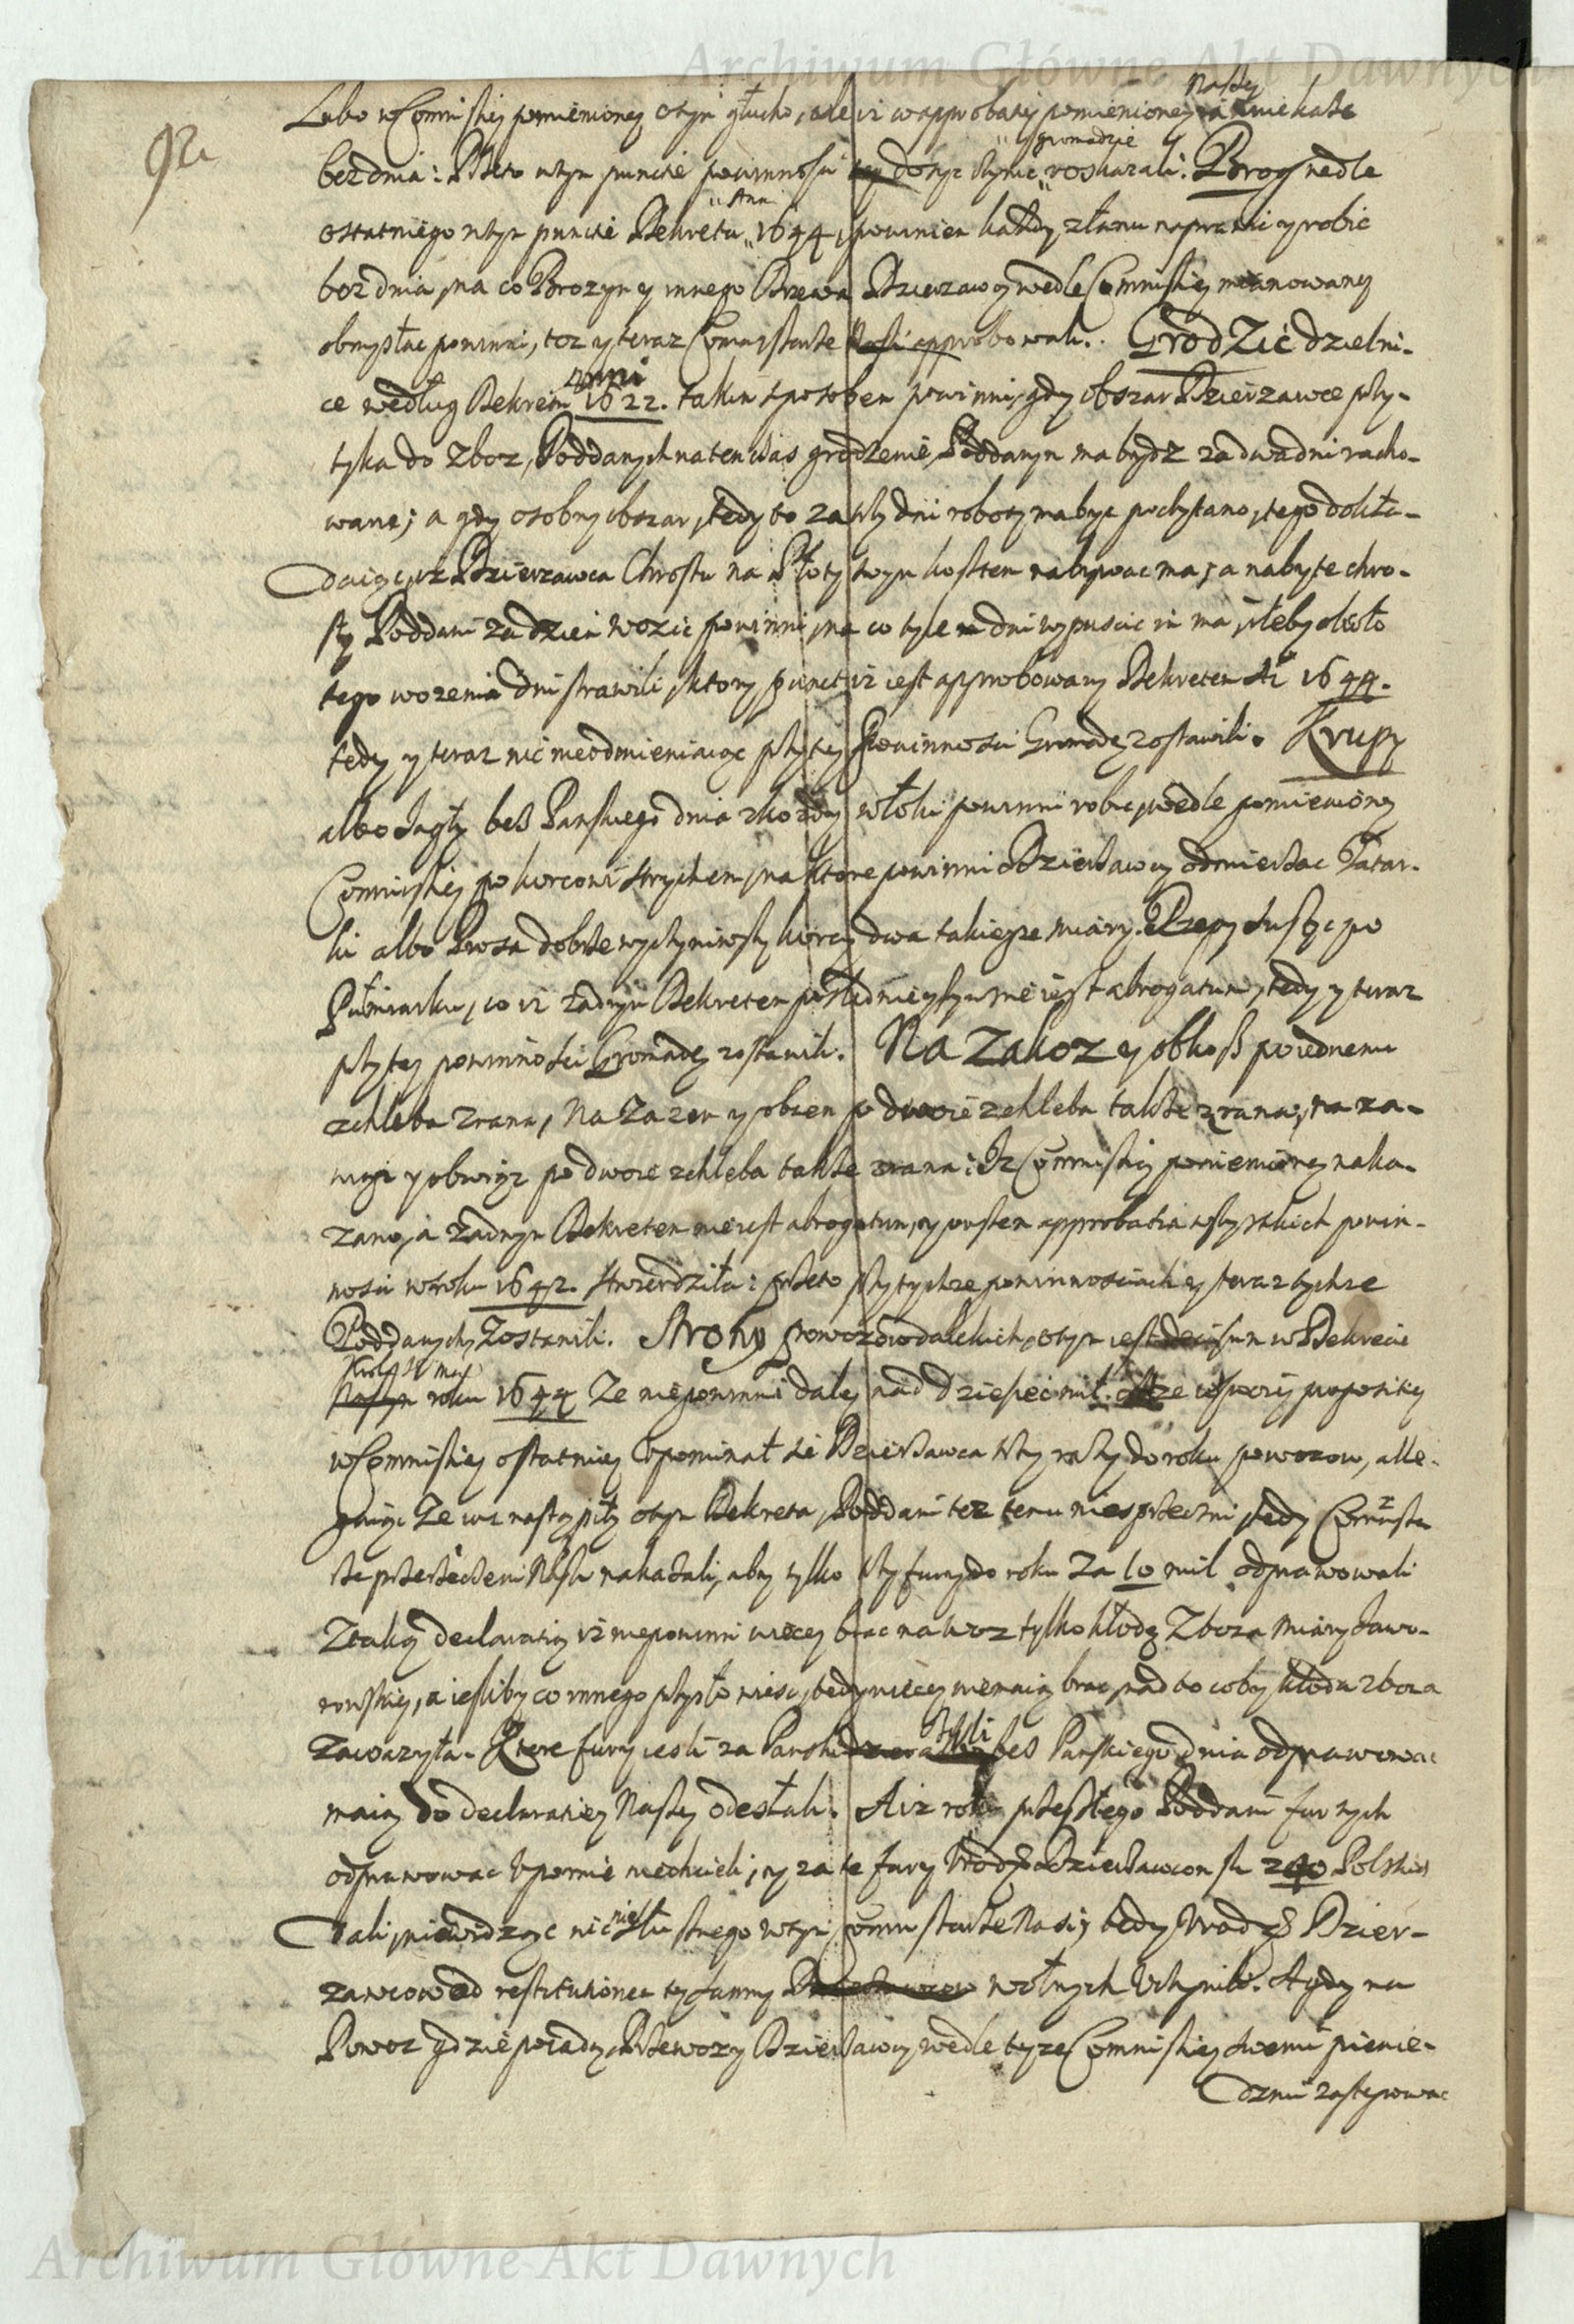 Archiwum Główne Akt Dawnych
92
Naszey
Lubo w Commissiey pomienioney otym głucho, ale iż w approbatiey pomienioney nie każe
gromadzie
bez dnia: Przeto w tym puncie powinności dosyc czynic roskazali: Brog wedle
Ann
ostatniego w tym puncie Dekretu 1644, powinien każdy z łanu naprawic y robic
bez dnia, na co Brozyn y innego Drzewa Dzierzawcy wedle Commissiey mianowaney
obmyslac powinni, toz y teraz Commissarze Nasi approbowali. Grodzić dzielni-
anni
ce według Dekretu 1622. takim sposobem powinni, gdy obszar Dzierzawce przy-
tyka do zboz Poddanych na ten czas grodzenie Poddanym ma bydz za dwa dni racho-
wane; a gdy osobny obszar, tedy to za trzy dni roboty ma byc poczytano, tego dokła-
daiąc, iż Dzierzawca Chrostu na Płoty swym kosztem nabywac ma, a nabyte chro-
sty Poddani za dzien wozic powinni, na co tyle dni wypuscic im ma, ileby około
tego wozenia dni strawili, ktory punct iż iest approbowany Dekretem Aº 1644.
tedy y teraz nic nieodmieniaiąc przy tey Powinnosci Gromadę zostawili. Krupy
albo Jagły bez Panskiego dnia z kozdey włoki powinni robic, wedle pomienioney
Commissiey po korcowi strychem, na ktore powinni Dzierzawcy odmierzac Tatar-
ki albo Prosa dobrze wyczyniwszy korcy dwa takieyze miary. Przepy tuszyc po
Pułmiarku, co iż zadnym Dekretem poslednieyszym nie iest abrogatum, tedy y teraz
przy tey powinności Gromadę zostawili. Na Zakoz y obkosz po iednemu
z chleba z rana, Na Zazen y obzen po dwoie z chleba także z rana, na za-
wiąz y obwiąz po dwoie z chleba także z rana: Iz Commissiey pomienioney naka-
zano, a zadnym Dekretem nie iest abrogatum, y owszem approbatia wszystkich powin-
nosci w roku 1642. stwierdziła: przeto przy tychze powinnosciach y teraz tychze
Poddanych Zostawili. Strony powozow dalekich, o tym iest decisum w Dekrecie
Krola Jº Mci
roku 1644 Ze nie powinni daley nad dziesięc mil. Ale
w Commissiey ostatniey Upominał się Dzierzawca trzy razy do roku powozow, alle-
guiąc Ze iuz nastąpiły o tym Dekreta, Poddani tez temu nie sprzeczni, tedy Commissa-
rze przerzeczeni Nasi nakazali, aby tylko trzy fury do roku Za 10 mil odprawowali
Z taką declaratią iż niepowinni więcey brac na woz tylko kłodę Zboza Miary Jawo-
rowskiey, a iesliby co innego przyszło wiesc, tedy więcey nie maią brac, nad to coby kłoda zboza
Zawazyła. Ktore fury iesli za Panski czyli bez Panskiego dnia odprawowac
maią do declaratiey Naszey odesłali. A iz roku przeszłego Poddani fur tych
odprawowac Upornie niechcieli, y za te fury Urodzº Dzierzawcom zł 240 Polskich
dali, niewidząc nic niesłusznego w tym Commissarze Nasi, tedy Urodzº Dzier-
zawcow od restitutionem tey summy wolnych Uczynili. A gdy na
Powoz gdzie poiadą, Przewozy Dzierzawcy wedle teyze Commissiey swemi pienie-
dzmi zastępowac
Archiwum Główne Akt Dawnych